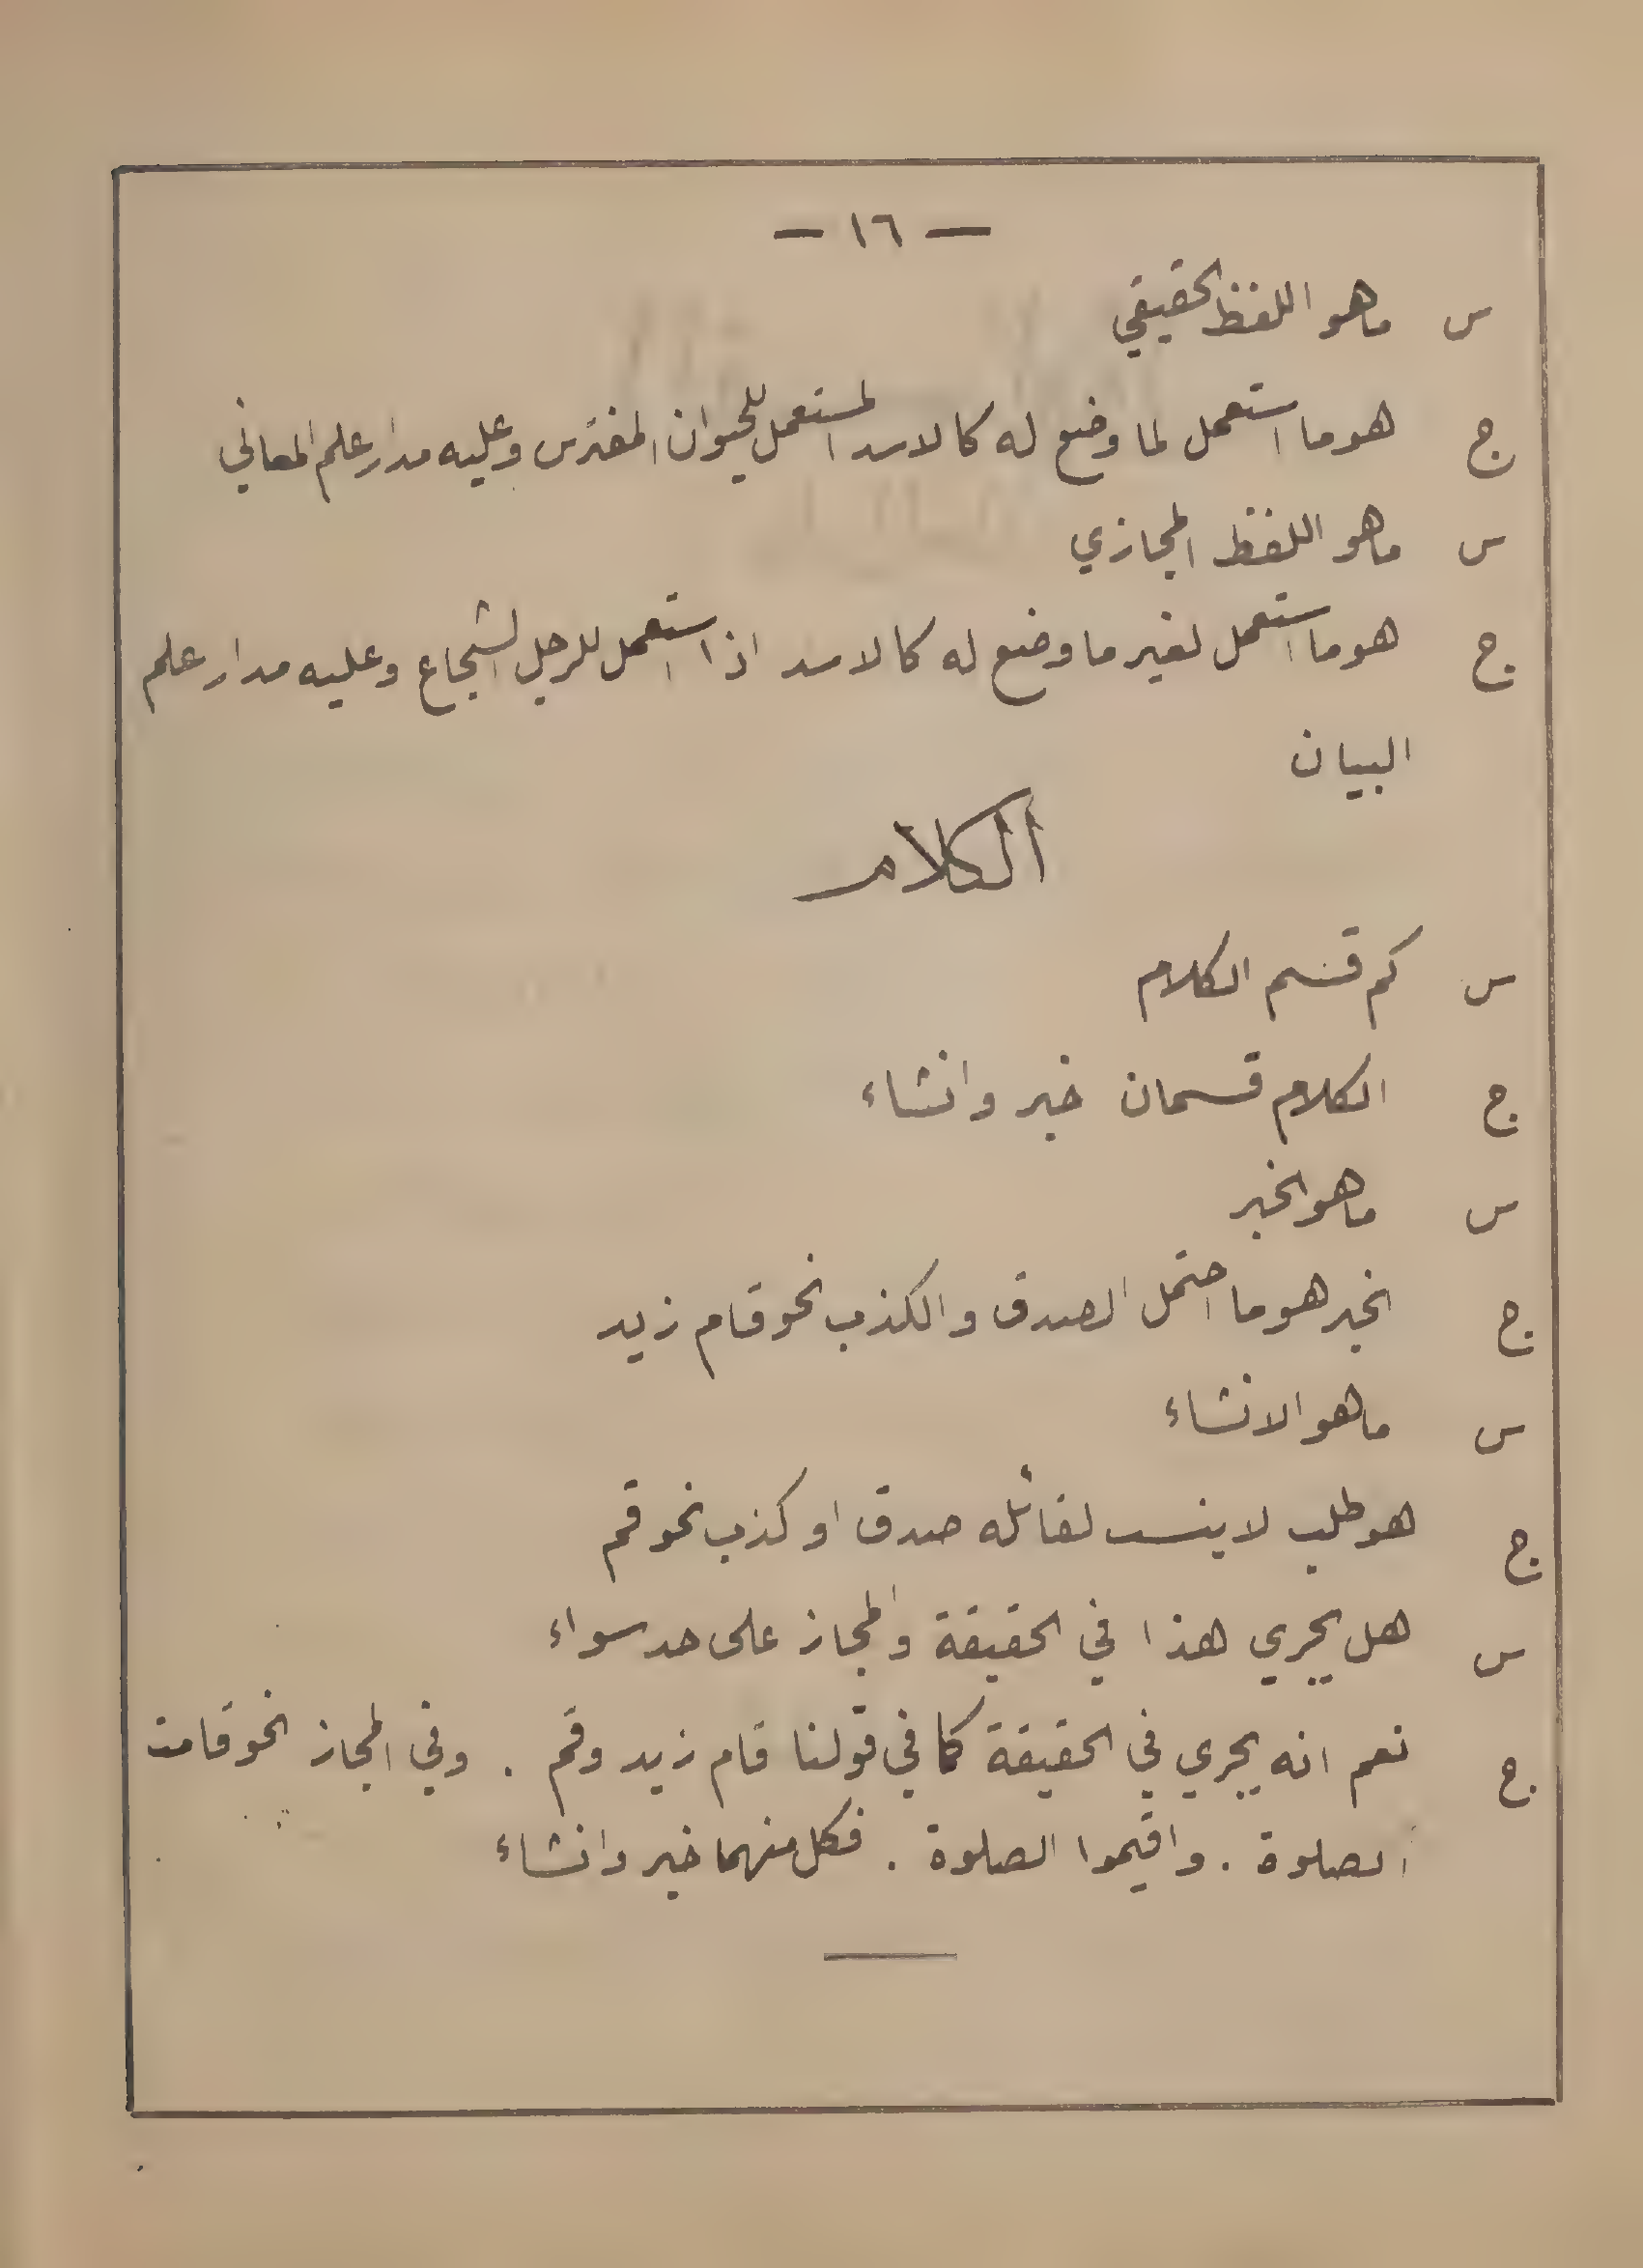 — ١٦ —
س ما هو اللفظ الحقيقي
ج هو ما استعمل لما وضع له كالاسد المستعمل للحيوان المفترس وعليه مدار علم المعاني
س ما هو اللفظ المجازي
ج هو ما استعمل لغير ما وضع له كالاسد اذا استعمل للرجل الشجاع وعليه مدار علم
البيان
الكلام
س كم قسم الكلام
ج الكلام قسمان خبر وانشاء
س ما هو الخبر
ج الخبر هو ما احتمل الصدق والكذب نحو قام زيد
س ما هو الانشاء
ج هو طلب لا ينسب لقائله صدق او كذب نحو قم
س هل يجري هذا في الحقيقة والمجاز على حد سواء
ج نعم انه يجري في الحقيقة كما في قولنا قام زيد وقم . وفي المجاز نحو قامت
الصلوة . واقيموا الصلوة . فكل منهما خبر وانشاء